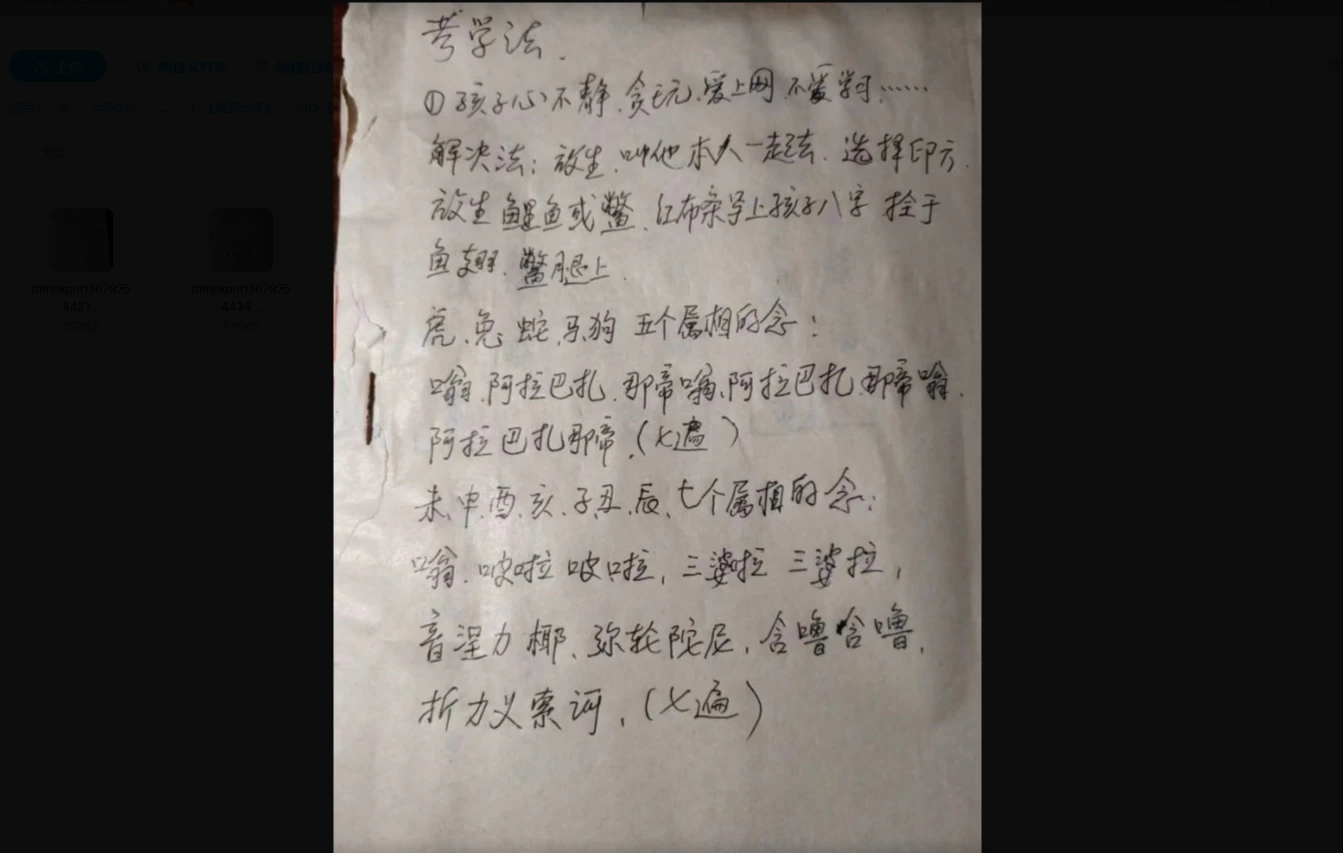 考学法.
① 孩子心不静.贪玩.爱上网.不爱学习……
解决法：放生.叫他本人一起去.选择印方.
放生鲤鱼或鳖.红布条写上孩子八字 拴于
鱼翅.鳖腿上.
虎、兔、蛇、马、狗 五个属相的念：
嗡.阿拉巴扎.那帝嗡、阿拉巴扎.那帝嗡.
阿拉巴扎那帝.(七遍)
未、申、酉、亥、子、丑、辰、七个属相的念：
嗡.哎啦哎啦，三婆啦 三婆拉，
音涅力椰、弥轮陀尼，含噜含噜，
折力义索诃，(七遍)
上传
新建文件夹
返回上一页
全部
mmexport162975
4423...
mmexport162975
4424...